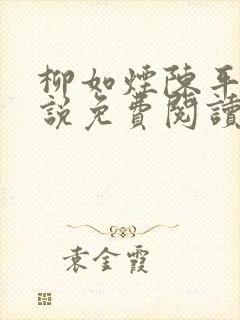 柳如煙陳平
說免費閱讀
袁金霞